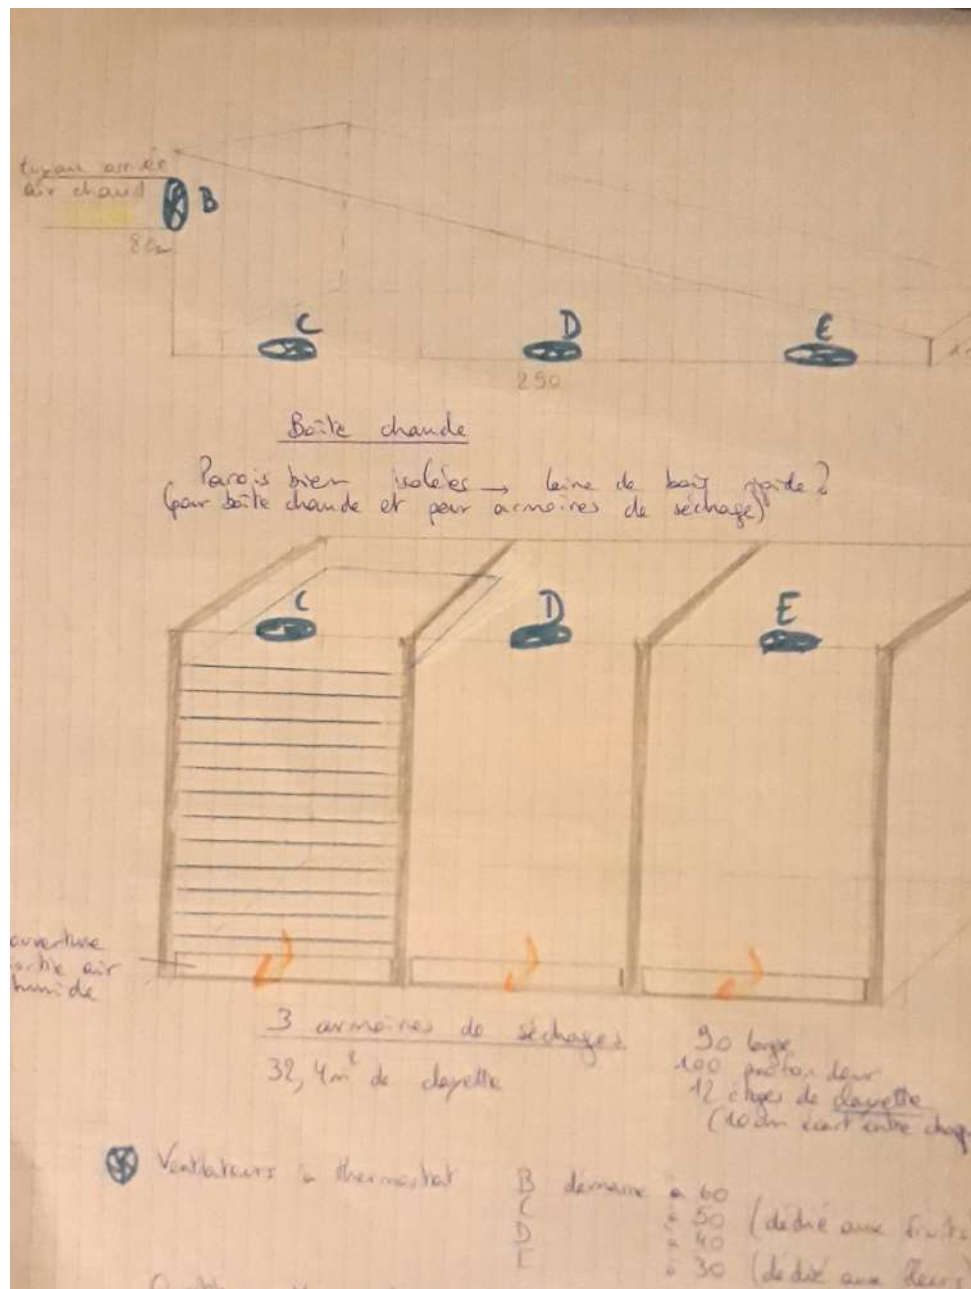 tuyau arrivée
air chaud
B
80
C D E
290
Boîte chaude
Parois bien isolées → laine de bois rigide?
(pour boîte chaude et pour armoires de séchage)
C D E
ouverture
sortie air
humide
3 armoires de séchages
32,4m² de clayette
90 large
100 profondeur
12 étages de clayette
(10cm écart entre chaq
Ventilateurs à thermostat
B démarre à 60
C à 50 (dédié aux fruits
D à 40
E à 30 (dédié aux fleurs)